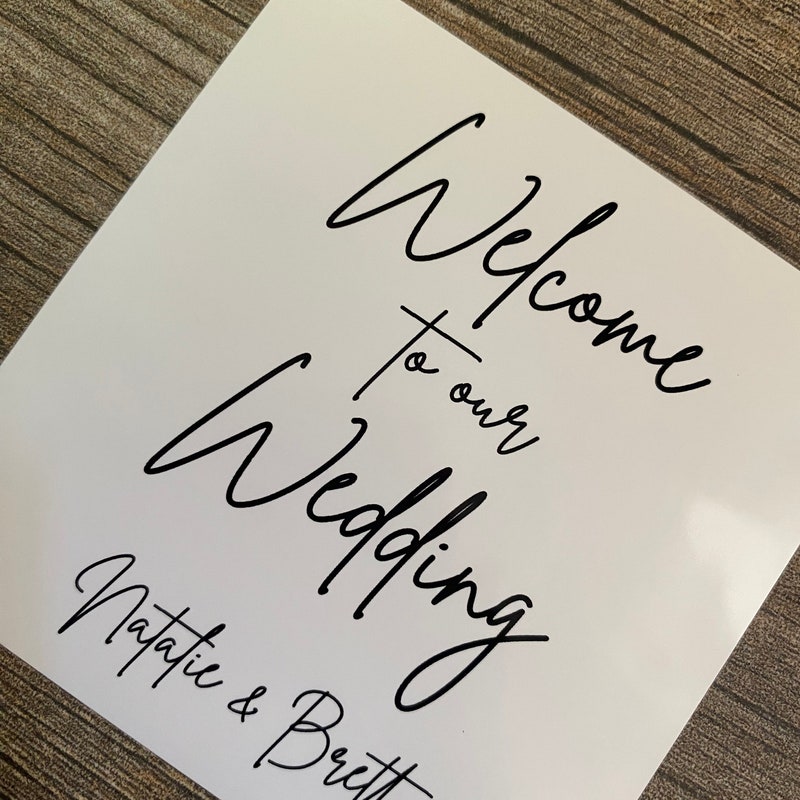 Welcome
to our
Wedding
Natalie & Brett